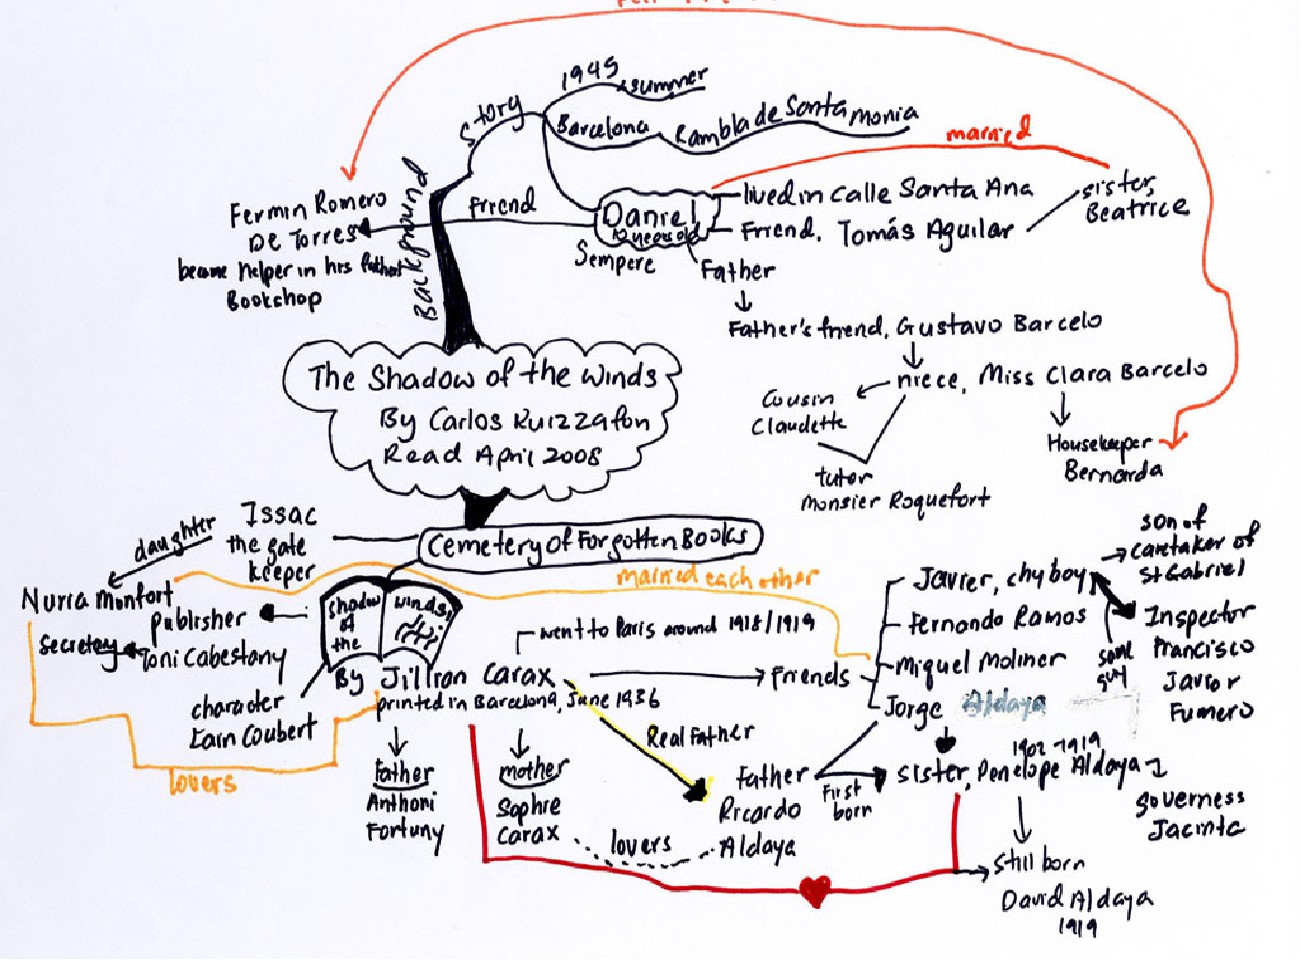 1945
summer
Story
Barcelona
Rambla de Santa Monia
married
Background
Fermin Romero
De Torres
became helper in his father
Bookshop
friend
Daniel
Sempere
lived in Calle Santa Ana
Friend, Tomás Aguilar
sister,
Beatrice
Father
Father's friend, Gustavo Barcelo
niece, Miss Clara Barcelo
Cousin
Claudette
tutor
Monsier Roquefort
Housekeeper
Bernarda
The Shadow of the Winds
By Carlos Ruizzafon
Read April 2008
Cemetery of Forgotten Books
Issac
the gate
keeper
daughter
Nuria Monfort
Publisher
Secretary
Toni Cabestany
married each other
Shadow
of
the
Winds
By Jillian Carax
printed in Barcelona, June 1936
character
Lain Coubert
lovers
went to Paris around 1918/1919
Friends
Javier, chyboy
Fernando Ramos
Miquel Moliner
Jorge Aldaya
son of
caretaker of
St Gabriel
same
guy
Inspector
Francisco
Javior
Fumero
Real Father
Father
Anthoni
Fortuny
mother
Sophie
Carax
lovers
Father
Ricardo
Aldaya
First
born
1902-1919
sister, Penelope Aldaya
Governess
Jacinta
still born
David Aldaya
1919